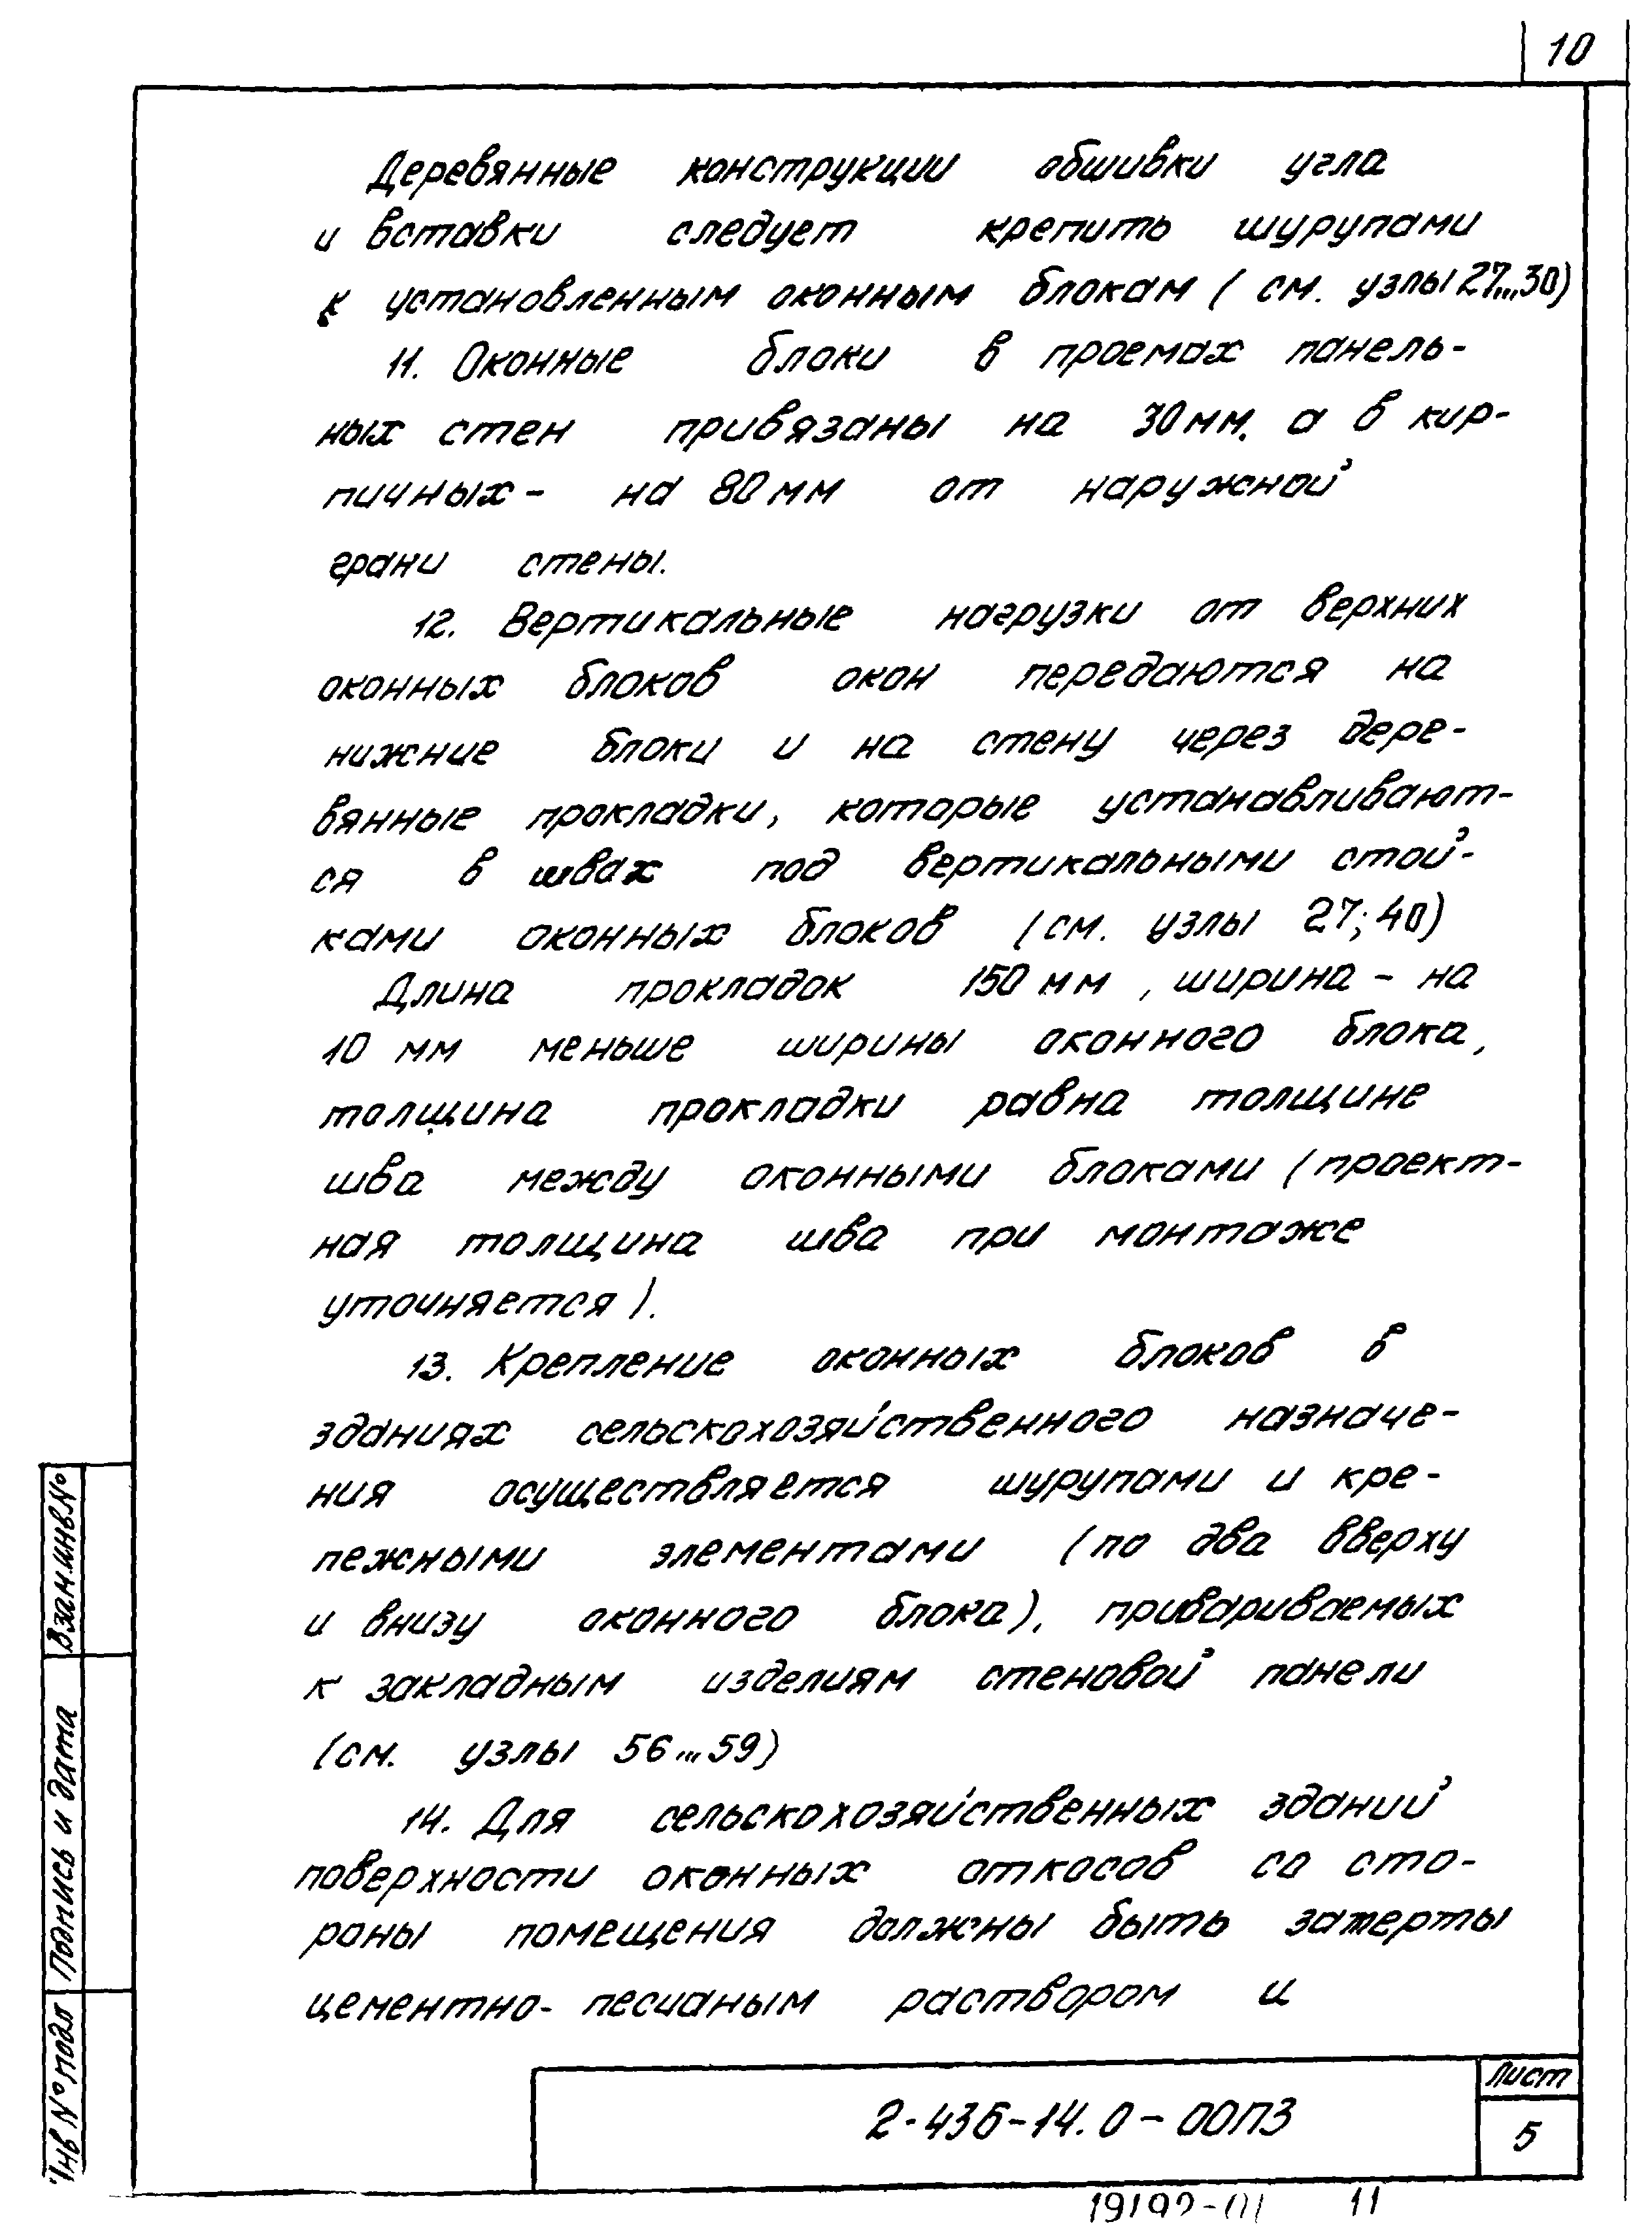 10
Деревянные конструкции обшивки угла
и вставки следует крепить шурупами
к установленным оконным блокам (см. узлы 27...30)
11. Оконные блоки в проемах панель-
ных стен привязаны на 30 мм, а в кир-
пичных - на 80 мм от наружной
грани стены.
12. Вертикальные нагрузки от верхних
оконных блоков окон передаются на
нижние блоки и на стену через дере-
вянные прокладки, которые устанавливают-
ся в швах под вертикальными стой-
ками оконных блоков (см. узлы 27; 40)
Длина прокладок 150 мм, ширина - на
10 мм меньше ширины оконного блока,
толщина прокладки равна толщине
шва между оконными блоками (проект-
ная толщина шва при монтаже
уточняется).
13. Крепление оконных блоков в
зданиях сельскохозяйственного назначе-
ния осуществляется шурупами и кре-
пежными элементами (по два вверху
и внизу оконного блока), привариваемых
к закладным изделиям стеновой панели
(см. узлы 56...59)
14. Для сельскохозяйственных зданий
поверхности оконных откосов со сто-
роны помещения должны быть затерты
цементно-песчаным раствором и
Взам.инв№
Подпись и дата
Инв № подл
2-436-14.0-00ПЗ
Лист
5
11